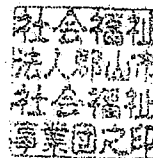 社会福祉
法人郡山市
社会福祉
事業団之印